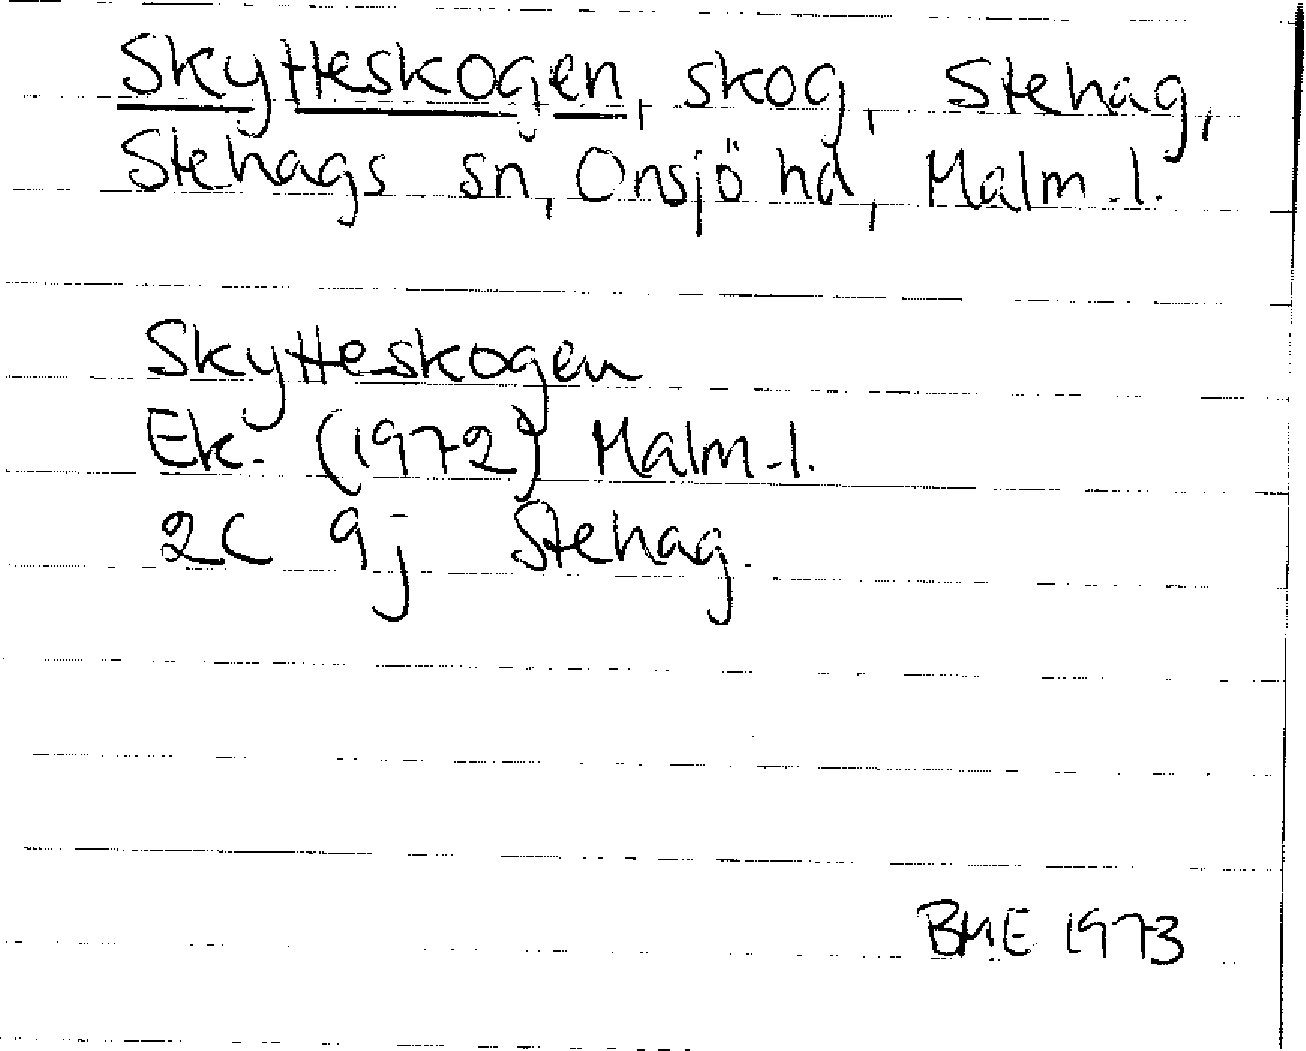 Skytteskogen, skog, Stehag,
Stehags sn, Onsjö hd, Malm.l.
Skytteskogen
Ek. (1972) Malm.l.
2C 9j Stehag.
BME 1973